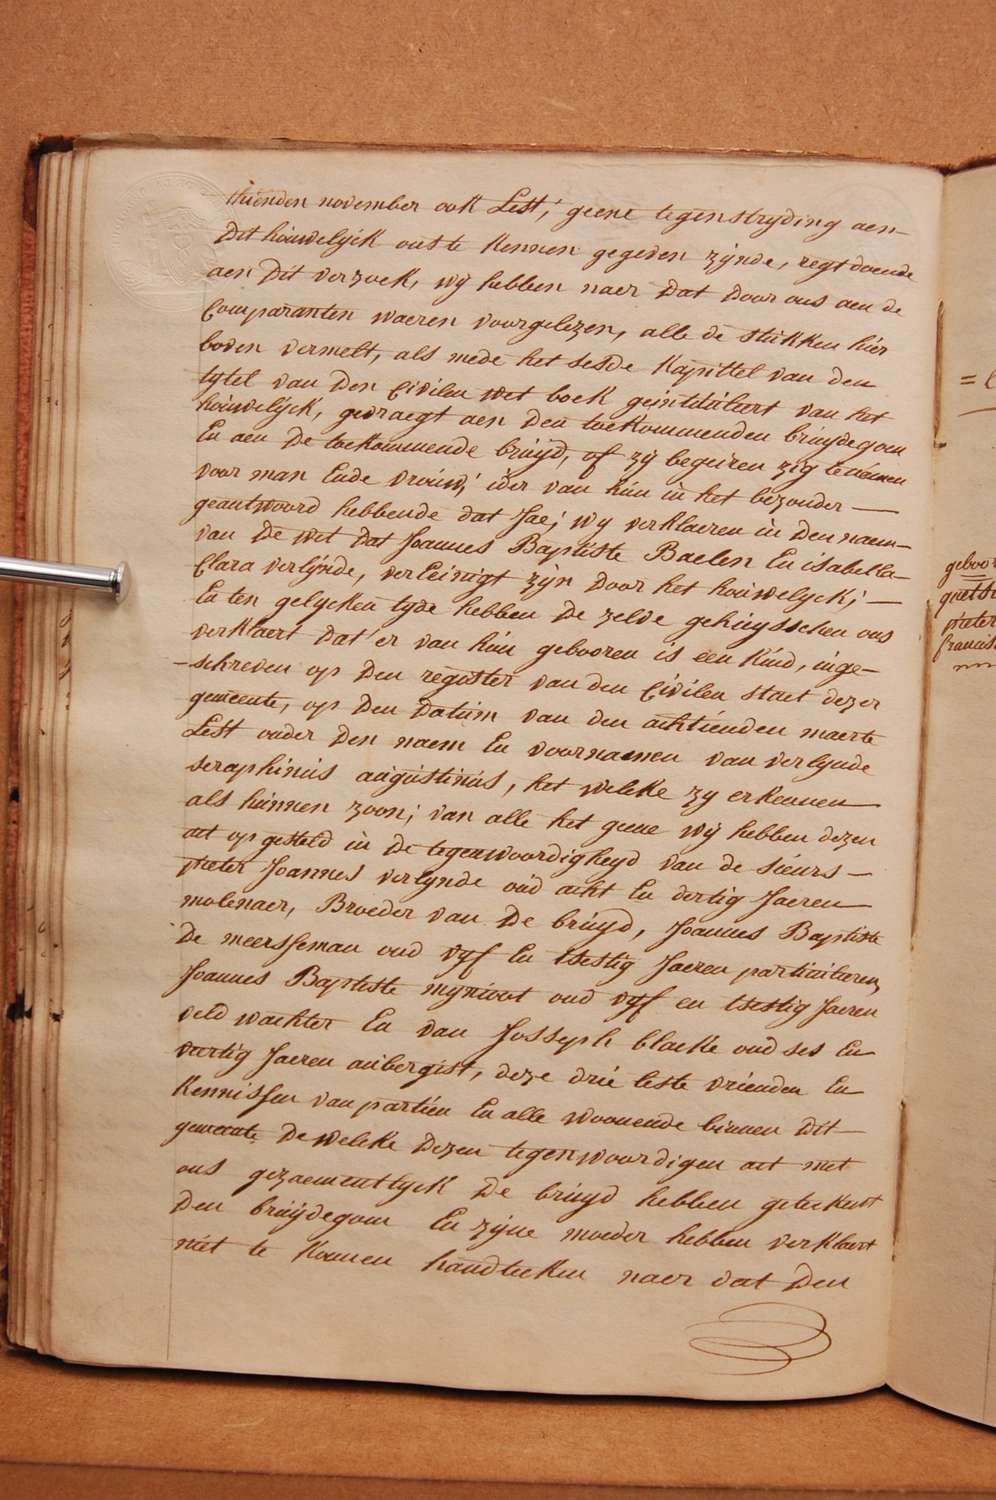 thienden november ook Lest; geene tegenstryding aen
Dit houwelijck ons te kennen gegeven zijnde, regt doende
aen Dit verzoek, wij hebben naer Dat Door ons aen de
Comparanten waeren voorgelezen, alle de stukken hier
boven vermelt, als mede het sesde Kapittel van den
tytel van Den Civilen wet boek geintituleert van het
houwelijck, gevraegt aen Den toekommenden bruijdegom
En aen De toekommende bruijd, of zij begeiren zig te nemen
voor man Ende vrouw; ider van hun in het bezonder —
geantwoord hebbende dat Jae; wy verklaeren in Den naem
van De wet Dat Joannes Baptiste Baelen En isabella
Clara verlijnde, verleinigt zijn Door het houwelijck; —
En ten gelycken tyde hebben De zelve gehuysschen ons
verklaert Dat er van hun gebooren is een kind, inge-
-schreven op Den register van den Civilen staet dezer
gemeente, op Den Datum van den achtienden maerte
Lest onder Den naem En voornaemen van verlynde
seraphinus augustinus, het welke zy erkennen
als hunnen zoon; van alle het geene wij hebben dezen
act op gesteld in De tegenwoordigheyd van de sieurs —
pieter Joannes verlynde oud acht En dertig Jaeren
molenaer, Broeder van De bruyd, Joannes Baptiste
De meersseman oud vyf En tsestig Jaeren particulieren,
Joannes Baptiste oud vyf en tsestig Jaeren
veld wachter En van Josseph blacke oud ses En
veertig Jaeren aubergist, deze drie leste vrienden En
Kennissen van partien En alle woonende binnen Dit
gemeente De welke Dezen tegenwoordigen act met
ons gezaementlyck De bruyd hebben geteekent
Den bruijdegom En zijne moeder hebben verklaert
niet te konnen handteeken naer dat Den
=
geboor
pieter
francis